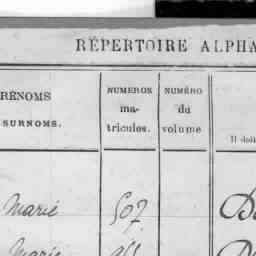 RÉPERTOIRE ALPHA
RÉNOMS
SURNOMS.
NUMEROS
ma-
tricules.
NUMÉRO
du
volume
Il doit
Marié 507
Marie